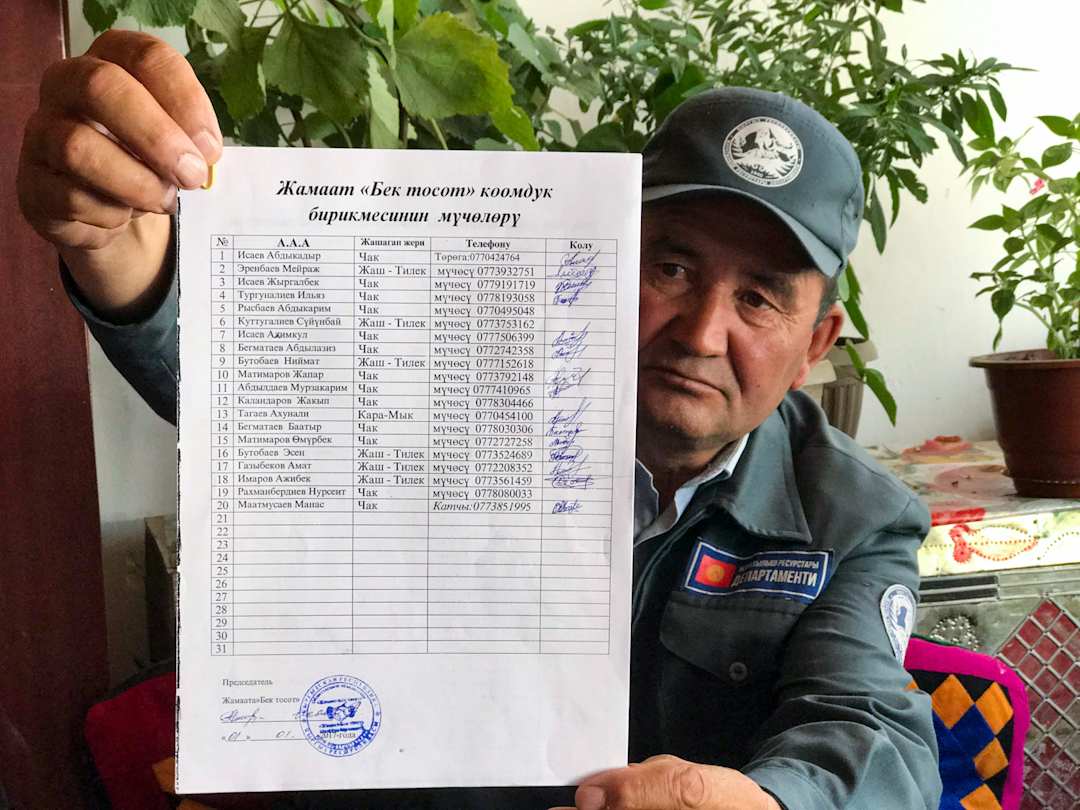 Жамаат «Бек тосот» коомдук
бирикмесинин мүчөлөрү
№ А.А.А Жашаган жери Телефону Колу
1 Исаев Абдыкадыр Чак Төрөга:0770424764
2 Эренбаев Мейраж Жаш - Тилек мүчөсү 0773932751
3 Исаев Жыргалбек Чак мүчөсү 0779191719
4 Тургуналиев Ильяз Чак мүчөсү 0778193058
5 Рысбаев Абдыкарим Чак мүчөсү 0770495048
6 Куттугалиев Сүйүнбай Жаш - Тилек мүчөсү 0773753162
7 Исаев Акимкул Чак мүчөсү 0777506399
8 Бегматаев Абдылазиз Чак мүчөсү 0772742358
9 Бутобаев Ниймат Жаш - Тилек мүчөсү 0777152618
10 Матимаров Жапар Чак мүчөсү 0773792148
11 Абдылдаев Мурзакарим Чак мүчөсү 0777410965
12 Каландаров Жакып Чак мүчөсү 0778304466
13 Тагаев Ахунали Кара-Мык мүчөсү 0770454100
14 Бегматаев Баатыр Чак мүчөсү 0778030306
15 Матимаров Өмүрбек Чак мүчөсү 0772727258
16 Бутобаев Эсен Жаш - Тилек мүчөсү 0773524689
17 Газыбеков Амат Жаш - Тилек мүчөсү 0772208352
18 Имаров Ажибек Жаш - Тилек мүчөсү 0773561459
19 Рахманбердиев Нурсеит Чак мүчөсү 0778080033
20 Маатмусаев Манас Чак Катчы:0773851995
21
22
23
24
25
26
27
28
29
30
31
Председатель
Жамаата«Бек тосот»
«01» 01. 2017-года
РЕСУРСТАРЫ
ДЕПАРТАМЕНТИ